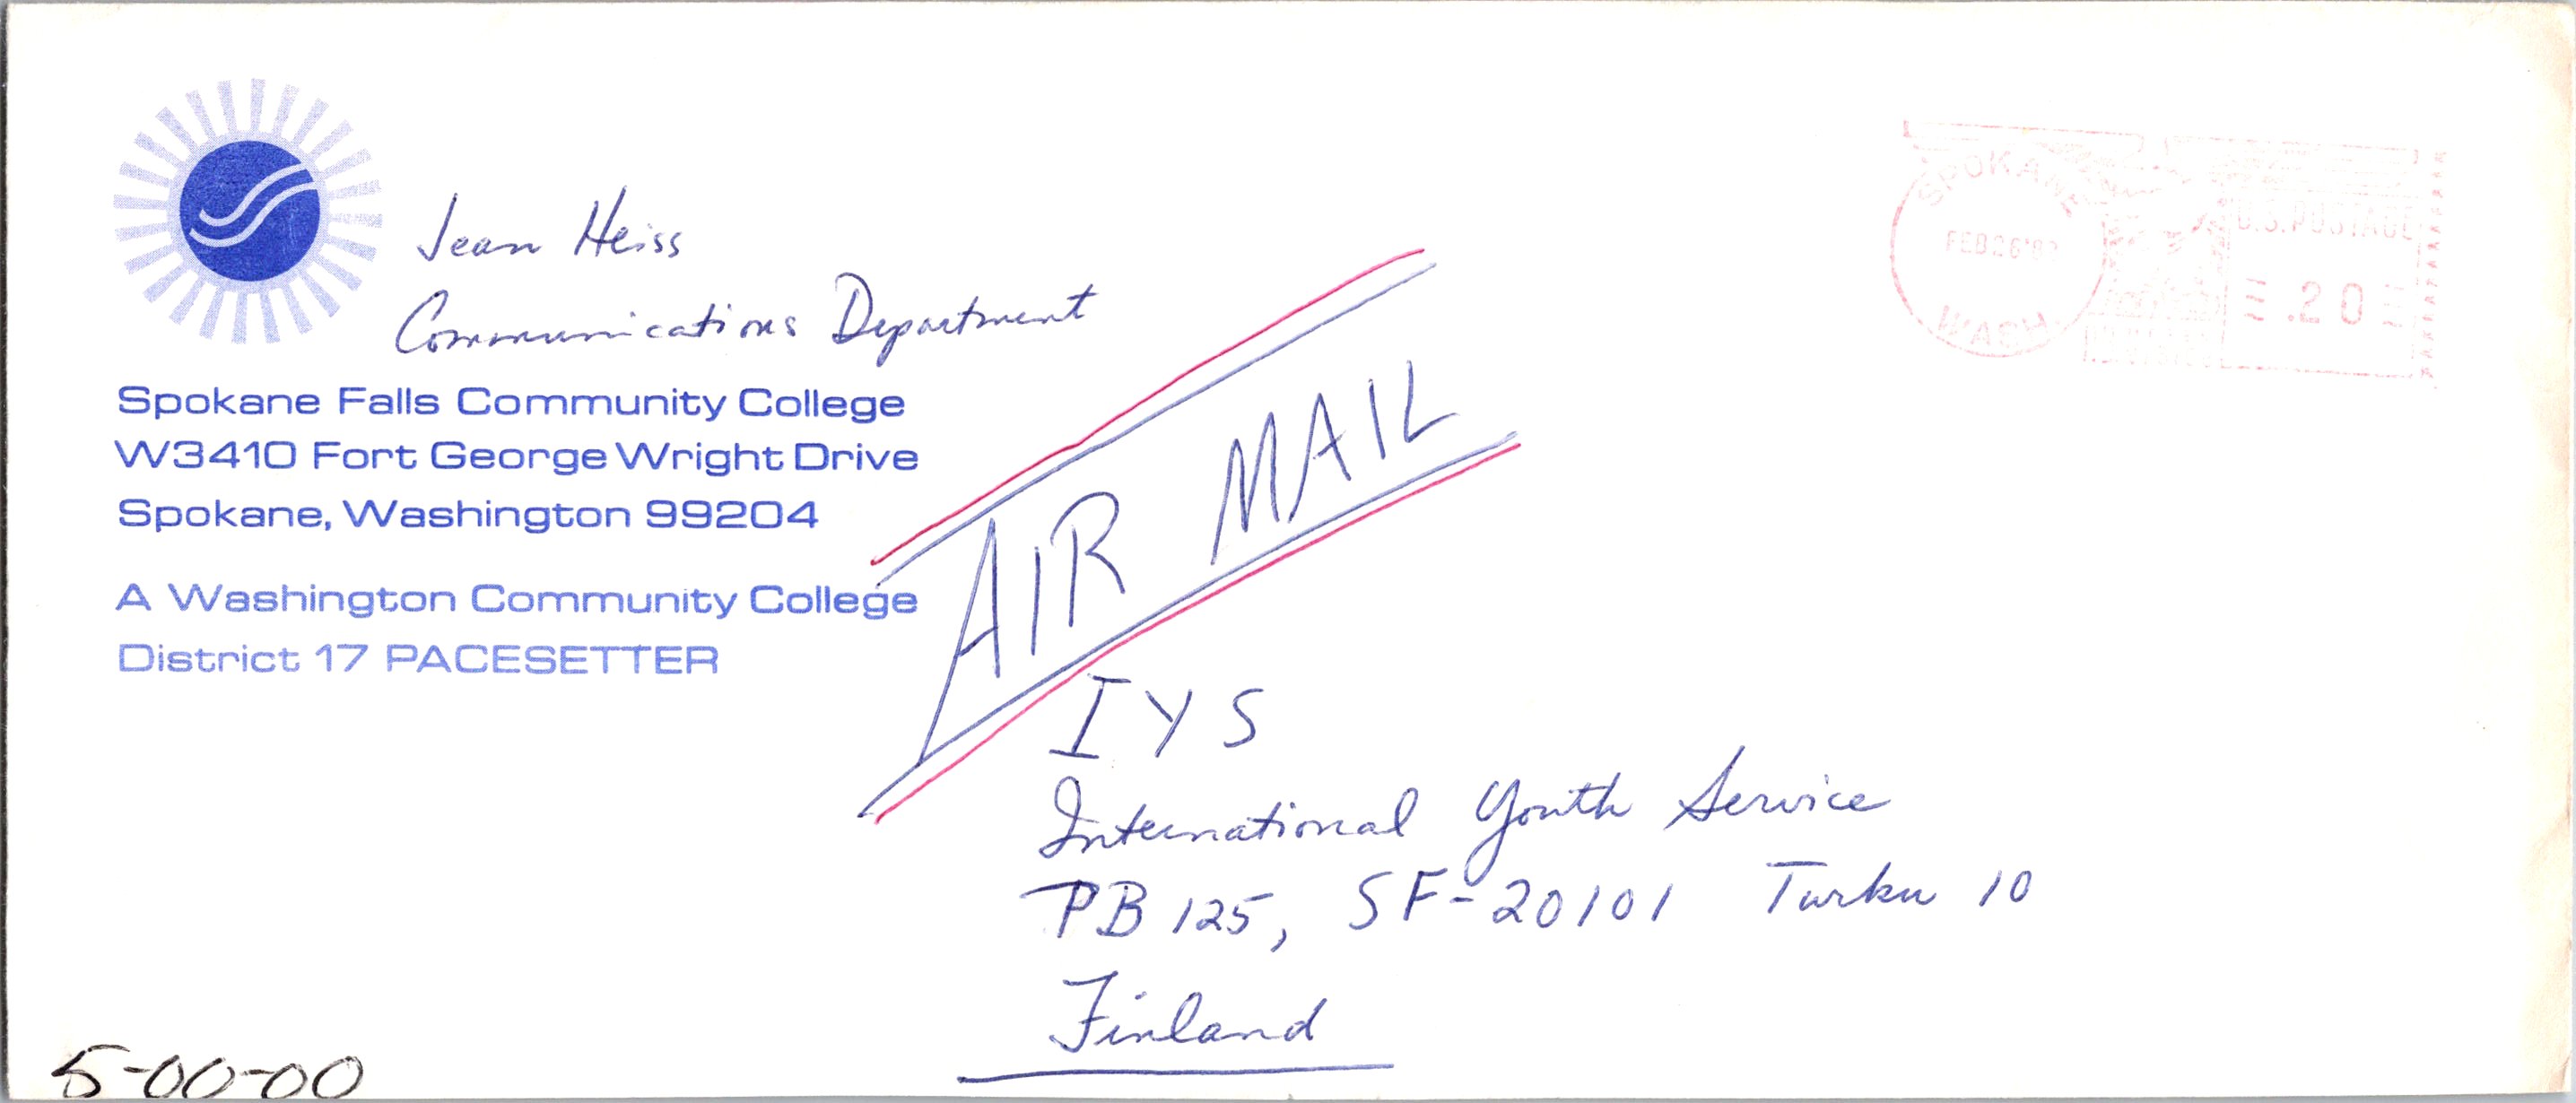 Jean Heiss
Communications Department
Spokane Falls Community College
W3410 Fort George Wright Drive
Spokane, Washington 99204
A Washington Community College
District 17 PACESETTER
SPOKANE
FEB 26
WASH
U.S. POSTAGE
.20
AIR MAIL
IYS
International Youth Service
PB 125, SF-20101 Turku 10
Finland
5-00-00